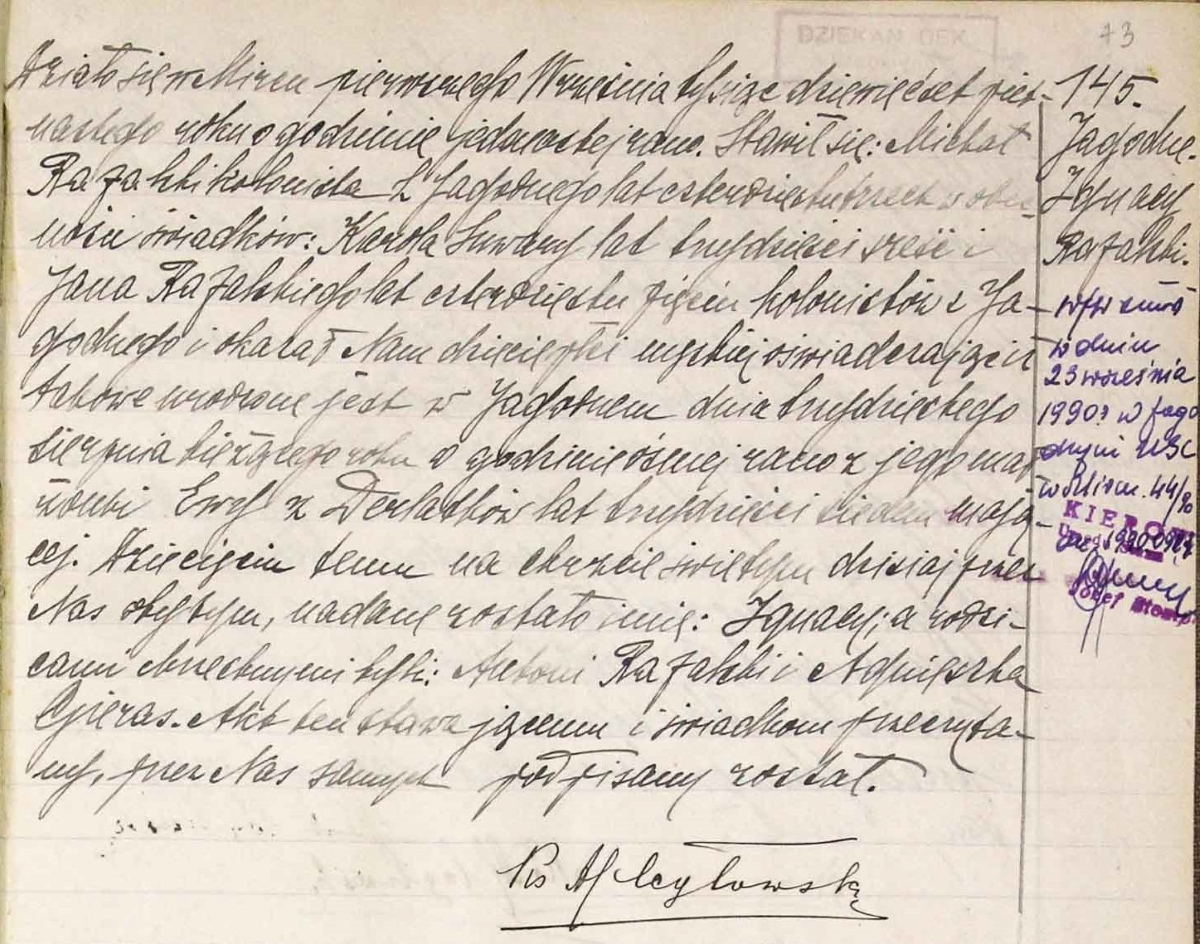 DZIEKAN DEK.
73
Działo się w Mircu pierwszego Września tysiąc dziewięćset pięt-
nastego roku o godzinie jedenastej rano. Stawił się: Michał
Rafalski kolonista z Jagodnego lat czterdzieści trzech w obec-
ności świadków: Karola Suwary lat trzydzieści sześć i
Jana Rafalskiego lat czterdziestu pięciu kolonistów z Ja-
godnego i okazał Nam dziecię płci męskiej oświadczając iż
takowe urodzone jest w Jagodnem dnia trzydziestego
sierpnia bieżącego roku o godzinie ósmej rano z jego mał
żonki Ewy z Derlatków lat trzydzieści siedem mają-
cej. Dziecięciu temu na chrzcie świętym dzisiaj przez
Nas odbytym, nadane zostało imię: Ignacy; a rodzi-
cami chrzestnymi byli: Antoni Rafalski i Agnieszka
Gieras. Akt ten stawającemu i świadkom przeczyta-
ny, przez Nas samych podpisany został.
Ks
145.
Jagodne.
Ignacy
Rafalski.
w/w zmarł
w dniu
23 września
1990 r w Jago
dnym USC
w 44/90
KIEROW
Józef